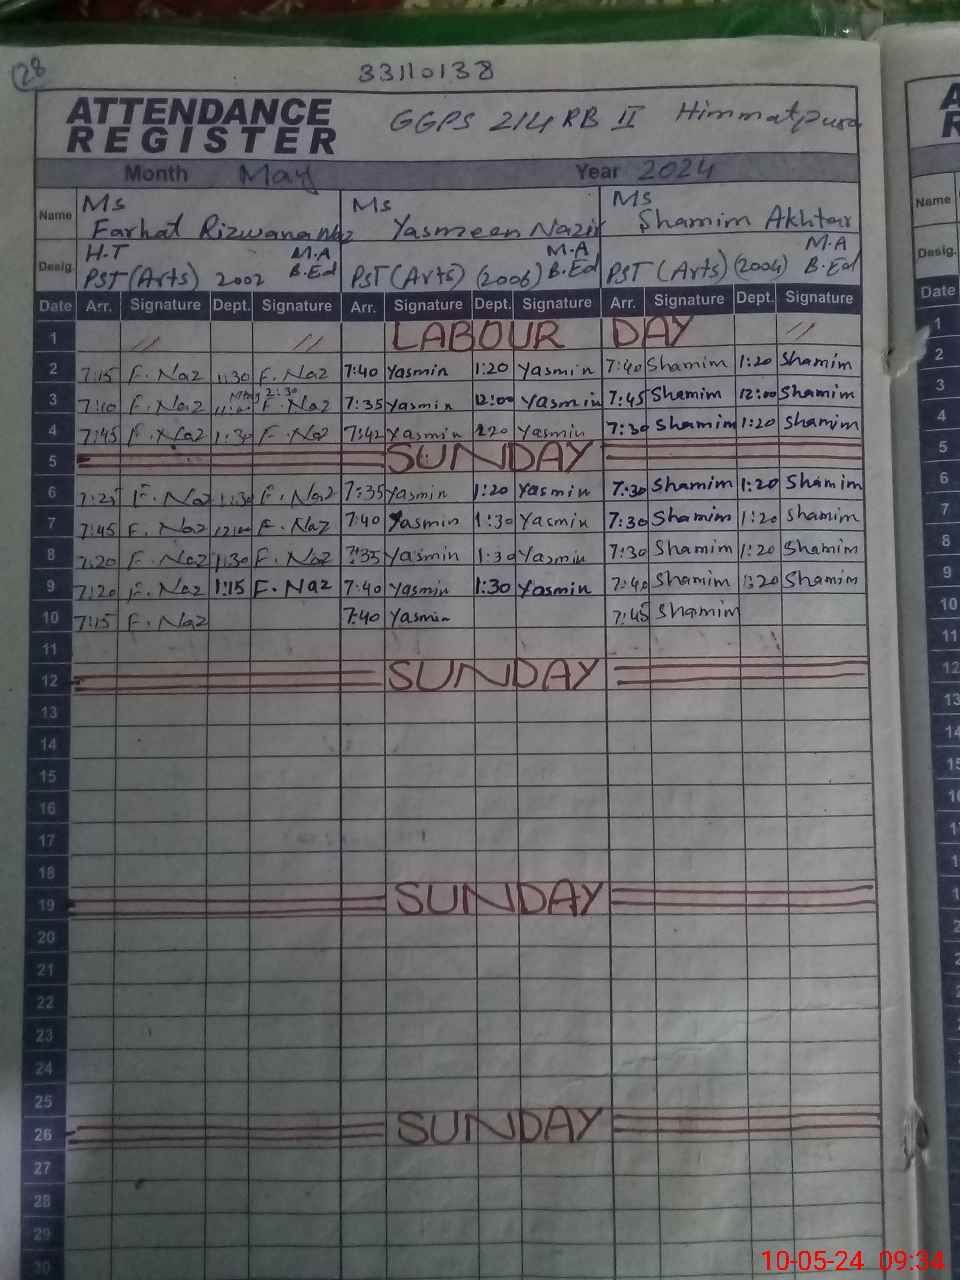 28
33110138
ATTENDANCE
REGISTER
GGPS 214 RB II Himmatpura
Month May Year 2024
Name Ms Farhat Rizwana Naz Ms Yasmeen Nazir Ms Shamim Akhtar
Desig. H.T M.A M.A M.A
PST (Arts) 2002 B.Ed PST (Arts) (2006) B.Ed PST (Arts) (2004) B.Ed
Date Arr. Signature Dept. Signature Arr. Signature Dept. Signature Arr. Signature Dept. Signature
1 // // LABOUR DAY //
2 7:15 F.Naz 1:30 F.Naz 7:40 Yasmin 1:20 Yasmin 7:40 Shamim 1:20 Shamim
3 7:10 F.Naz F.Naz 7:35 Yasmin 12:00 Yasmin 7:45 Shamim 12:00 Shamim
4 7:45 F.Naz 1:30 F.Naz 7:42 Yasmin 1:20 Yasmin 7:30 Shamim 1:20 Shamim
5 SUNDAY
6 7:25 F.Naz 1:30 F.Naz 7:35 Yasmin 1:20 Yasmin 7:30 Shamim 1:20 Shamim
7 7:45 F.Naz 12:00 F.Naz 7:40 Yasmin 1:30 Yasmin 7:30 Shamim 1:20 Shamim
8 7:20 F.Naz 1:30 F.Naz 7:35 Yasmin 1:30 Yasmin 7:30 Shamim 1:20 Shamim
9 7:20 F.Naz 1:15 F.Naz 7:40 Yasmin 1:30 Yasmin 7:40 Shamim 1:20 Shamim
10 7:15 F.Naz 7:40 Yasmin 7:45 Shamim
11
12 SUNDAY
13
14
15
16
17
18
19 SUNDAY
20
21
22
23
24
25
26 SUNDAY
27
28
29
30
Name
Desig.
Date
1
2
3
4
5
6
7
8
9
10
11
12
13
10-05-24 09:34